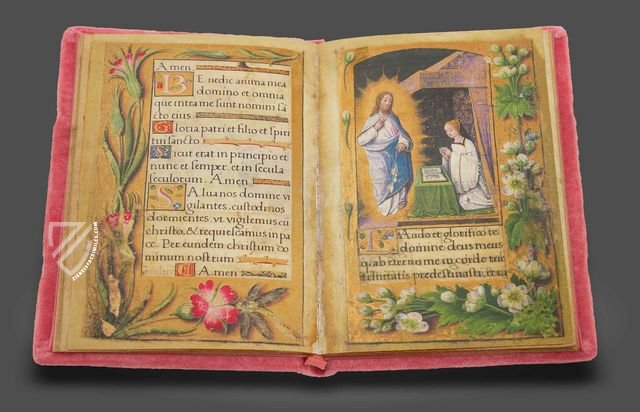 Amen.
BE nedic anima mea
domino et omnia
que intra me sunt nomini sā
cto eius
Gloria patri et filio et spiri
tui sancto
Sicut erat in principio et
nunc et semper, et in secula
seculorum. Amen
Salua nos domine vi
gilantes, custodi nos
dormientes, vt vigilemus cū
christo, & requiescamus in pa
ce. Per eundem christum do
minum nostrum
Amen
Laudo et glorifico te
domine deus meus
trinitatis predestinasti,
ZIEREIS FACSIMILES.COM